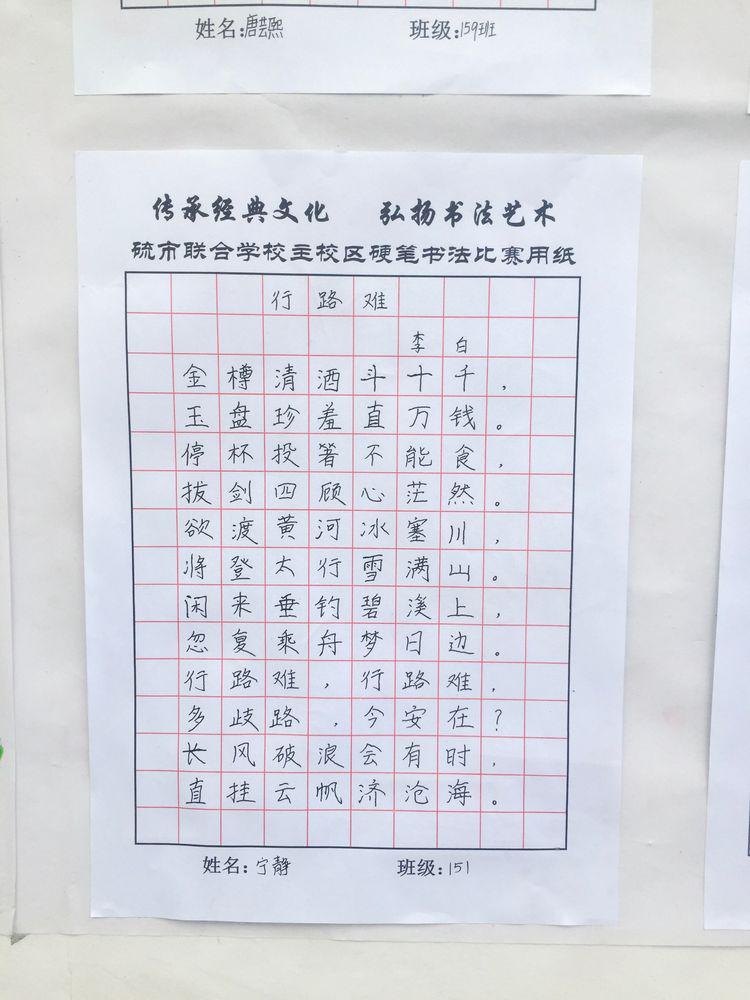 姓名:唐芸熙 班级:159班
传承经典文化 弘扬书法艺术
硫市联合学校主校区硬笔书法比赛用纸
行路难
李白
金樽清酒斗十千，
玉盘珍羞直万钱。
停杯投箸不能食，
拔剑四顾心茫然。
欲渡黄河冰塞川，
将登太行雪满山。
闲来垂钓碧溪上，
忽复乘舟梦日边。
行路难，行路难，
多歧路，今安在?
长风破浪会有时，
直挂云帆济沧海。
姓名:宁静 班级:151